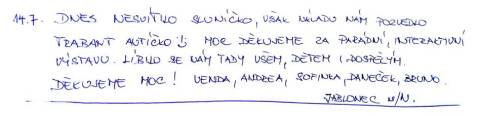 14.7. DNES NESVÍTILO SLUNÍČKO, VŠAK NÁLADU NÁM POZVEDLO
TRABANT AUTÍČKO MOC DĚKUJEME ZA PARÁDNÍ, INTERAKTIVNÍ
VÝSTAVU. LÍBILO SE NÁM TADY VŠEM, DĚTEM I DOSPĚLÝM.
DĚKUJEME MOC! VENDA, ANDREA, SOFINKA, DANEČEK, BRUNO.
JABLONEC N/N.